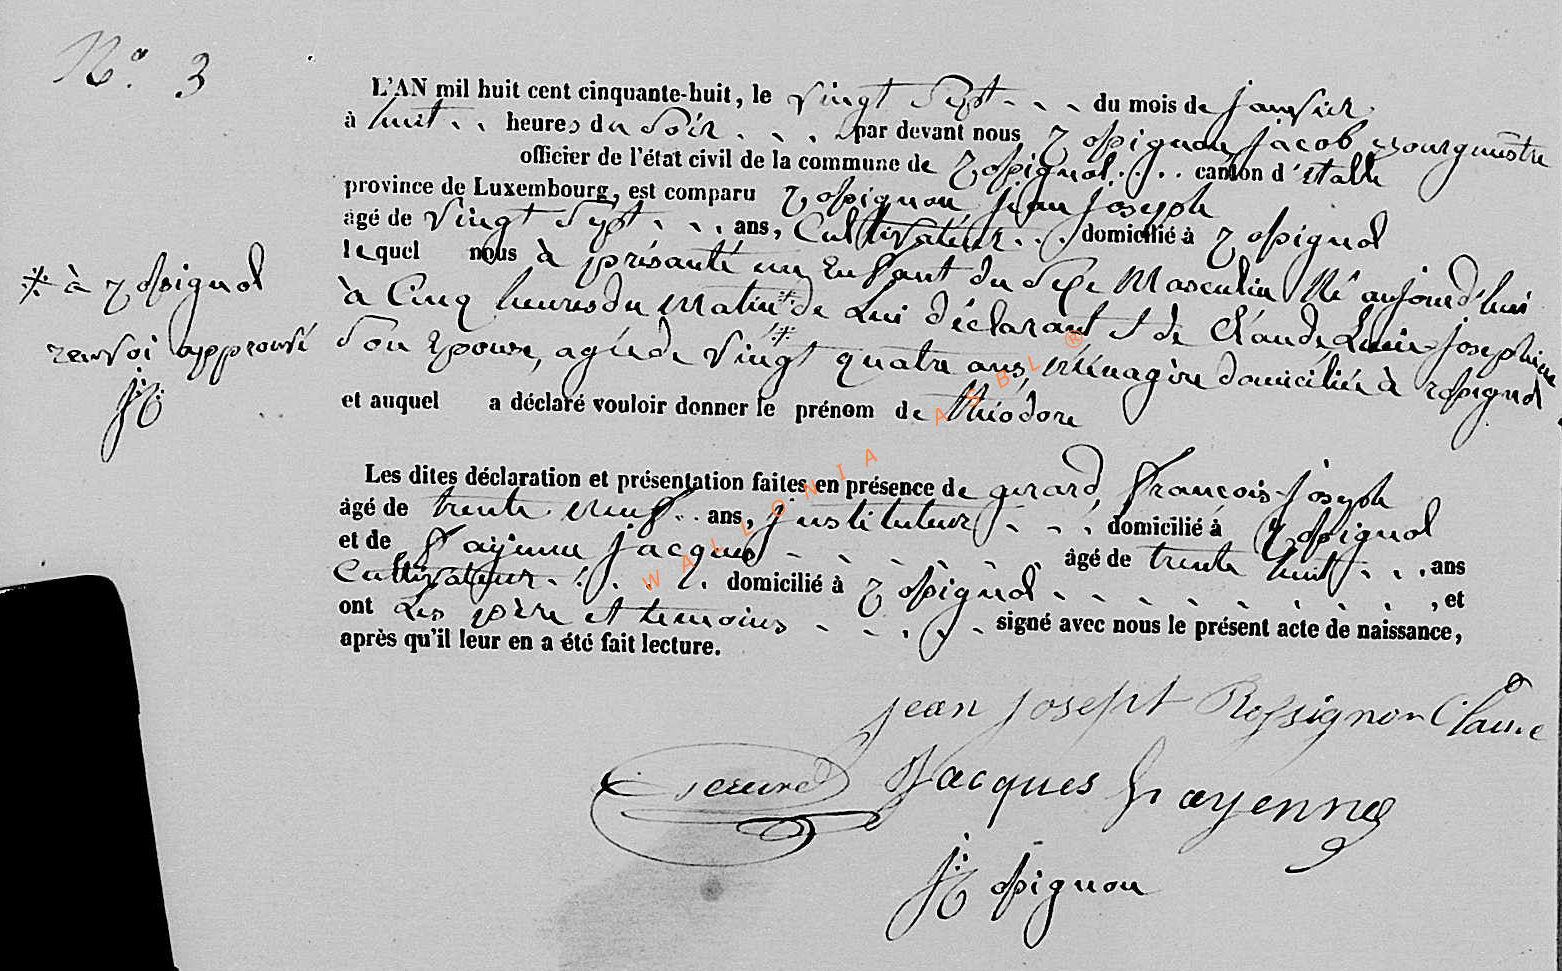 N.° 3
L'AN mil huit cent cinquante-huit, le vingt sept - - - du mois de janvier
à huit - - heures du soir - - - par devant nous Rossignon jacob Bourgmestre
officier de l'état civil de la commune de Rossignol - - - canton d'étalle
province de Luxembourg, est comparu Rossignon jean joseph
âgé de vingt sept - - - ans, Cultivateur - - domicilié à Rossignol
lequel nous à présanté un Enfant du Sexe Masculin Né aujourd'hui
* à Rossignol
à Cinq heures du matin * de Lui déclarant & de Claude Lucie Joséphine
renvoi approuvé
son Epouse, agée de vingt quatre ans, ménagère domiciliée à rossignol
JR
et auquel a déclaré vouloir donner le prénom de théodore
Les dites déclaration et présentation faites en présence de gerard françois joseph
âgé de trente neuf - - ans, justituteur - - - domicilié à Rossignol
et de fayenne jacques - - - - - - âgé de trente huit - - - ans
Cultivateur - - - - domicilié à Rossignol - - - - - - - - , et
ont Les père et temoins - - - - - signé avec nous le présent acte de naissance,
après qu'il leur en a été fait lecture.
jean josepht Rossignon Claude
gerard Jacques fayenne
JRossignon
WALLONIA ASBL ®